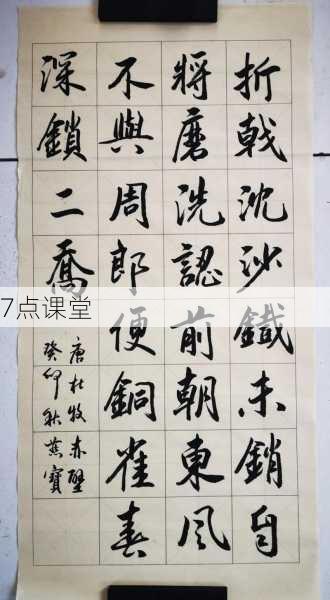 折戟沈沙鐵未銷自
將磨洗認前朝東風
不與周郎便銅雀春
深鎖二喬
唐杜牧赤壁
癸卯秋寶
7点课堂